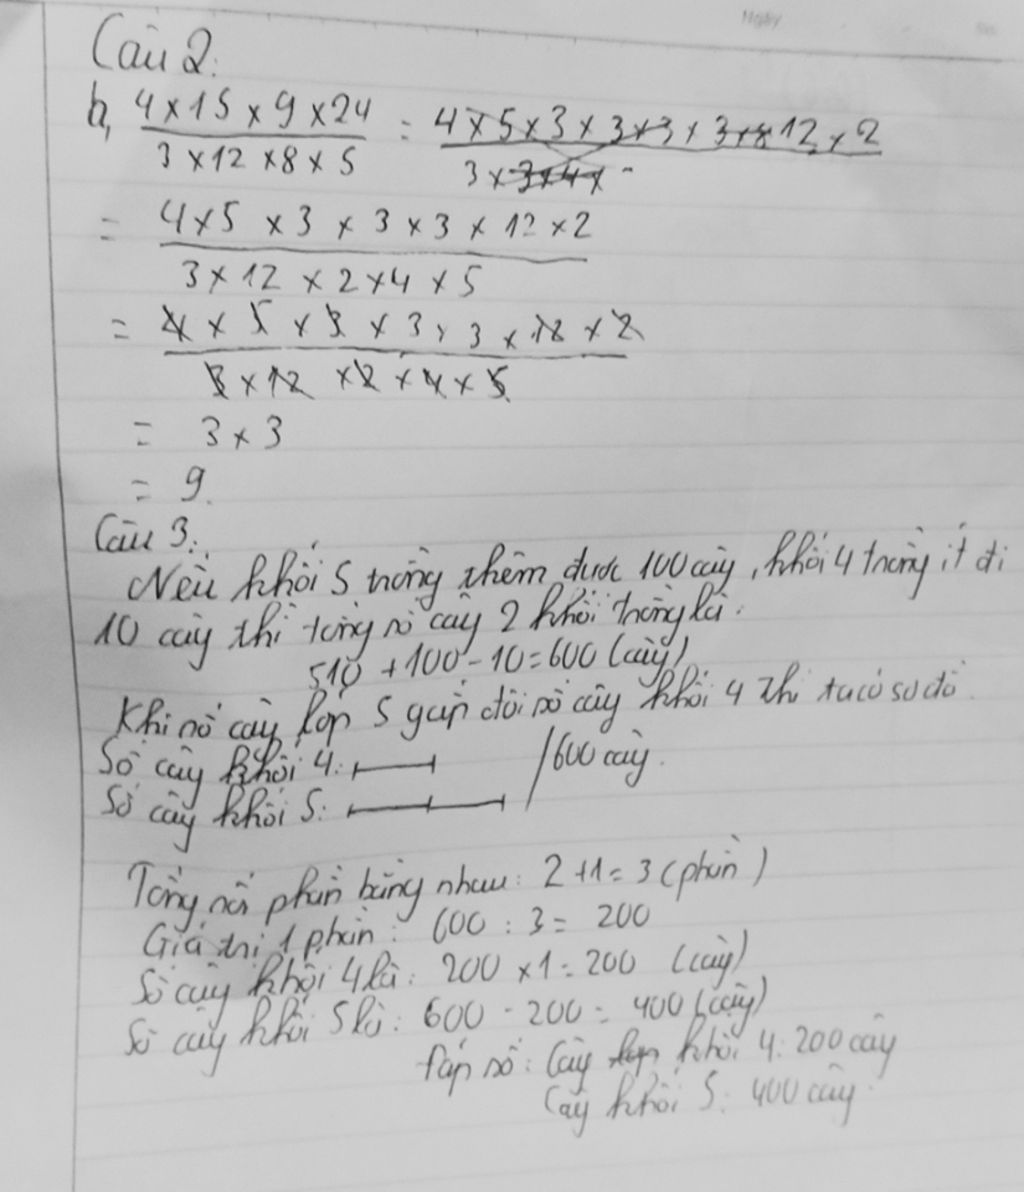 Ngày
Câu 2.
b, 4 x 15 x 9 x 24 / 3 x 12 x 8 x 5 = 4 x 5 x 3 x 3 x 3 x 3 x 8 12 x 2 / 3 x 3 x 4 x
= 4 x 5 x 3 x 3 x 3 x 12 x 2 / 3 x 12 x 2 x 4 x 5
= 4 x 5 x 3 x 3 x 3 x 12 x 2 / 3 x 12 x 2 x 4 x 5
= 3 x 3
= 9.
Câu 3.
Nếu khối 5 trồng thêm được 100 cây, khối 4 trồng ít đi
10 cây thì tổng số cây 2 khối trồng là:
510 + 100 - 10 = 600 (cây)
Khi số cây lớp 5 gấp đôi số cây khối 4 thì ta có sơ đồ.
Số cây khối 4:
600 cây.
Số cây khối 5:
Tổng số phần bằng nhau: 2 + 1 = 3 (phần)
Giá trị 1 phần: 600 : 3 = 200
Số cây khối 4 là: 200 x 1 = 200 (cây)
Số cây khối 5 là: 600 - 200 = 400 (cây)
Đáp số: Cây lớp khối 4: 200 cây
Cây khối 5: 400 cây.